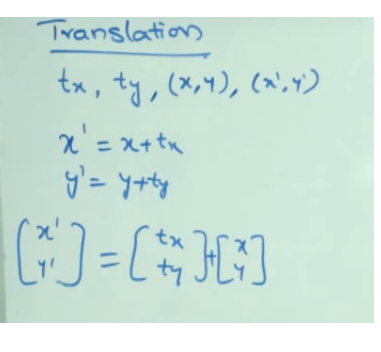 Translation
tx, ty, (x,y), (x',y')
x' = x+tx
y' = y+ty
[x' y'] = [tx ty] + [x y]